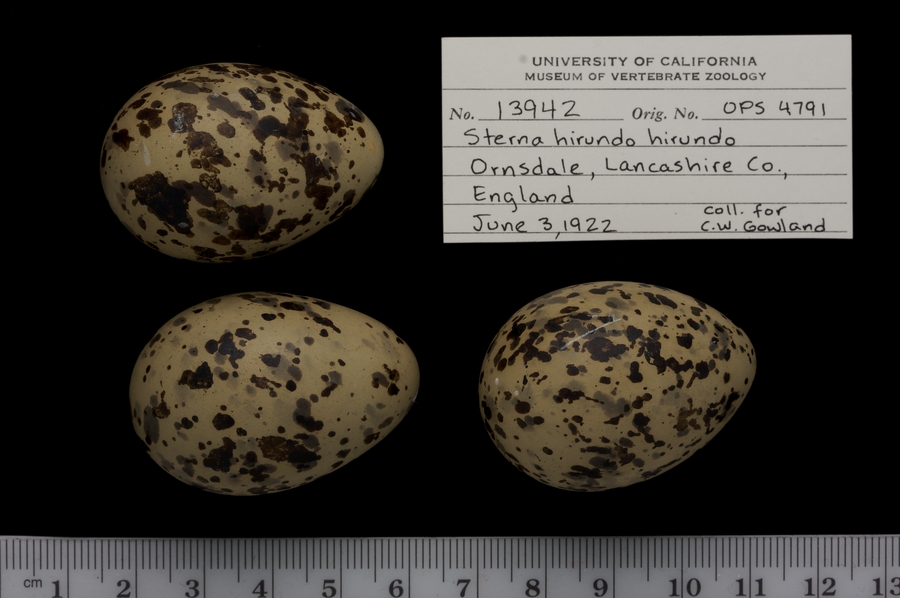 UNIVERSITY OF CALIFORNIA
MUSEUM OF VERTEBRATE ZOOLOGY
No. 13942 Orig. No. OPS 4791
Sterna hirundo hirundo
Ornsdale, Lancashire Co.,
England
June 3, 1922 coll. for
C.W. Gowland
cm 1 2 3 4 5 6 7 8 9 10 11 12 13